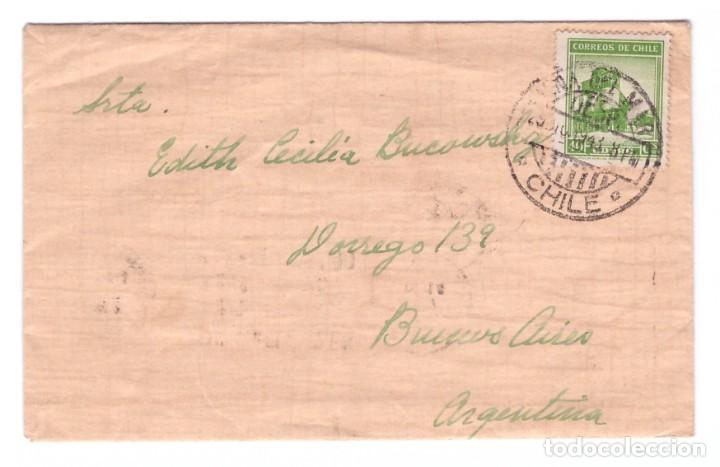 CORREOS DE CHILE
DEL MAR
CHILE
Srta.
Edith Cecilia Bucowska
Dorrego 139
Buenos Aires
Argentina
todocoleccion.net